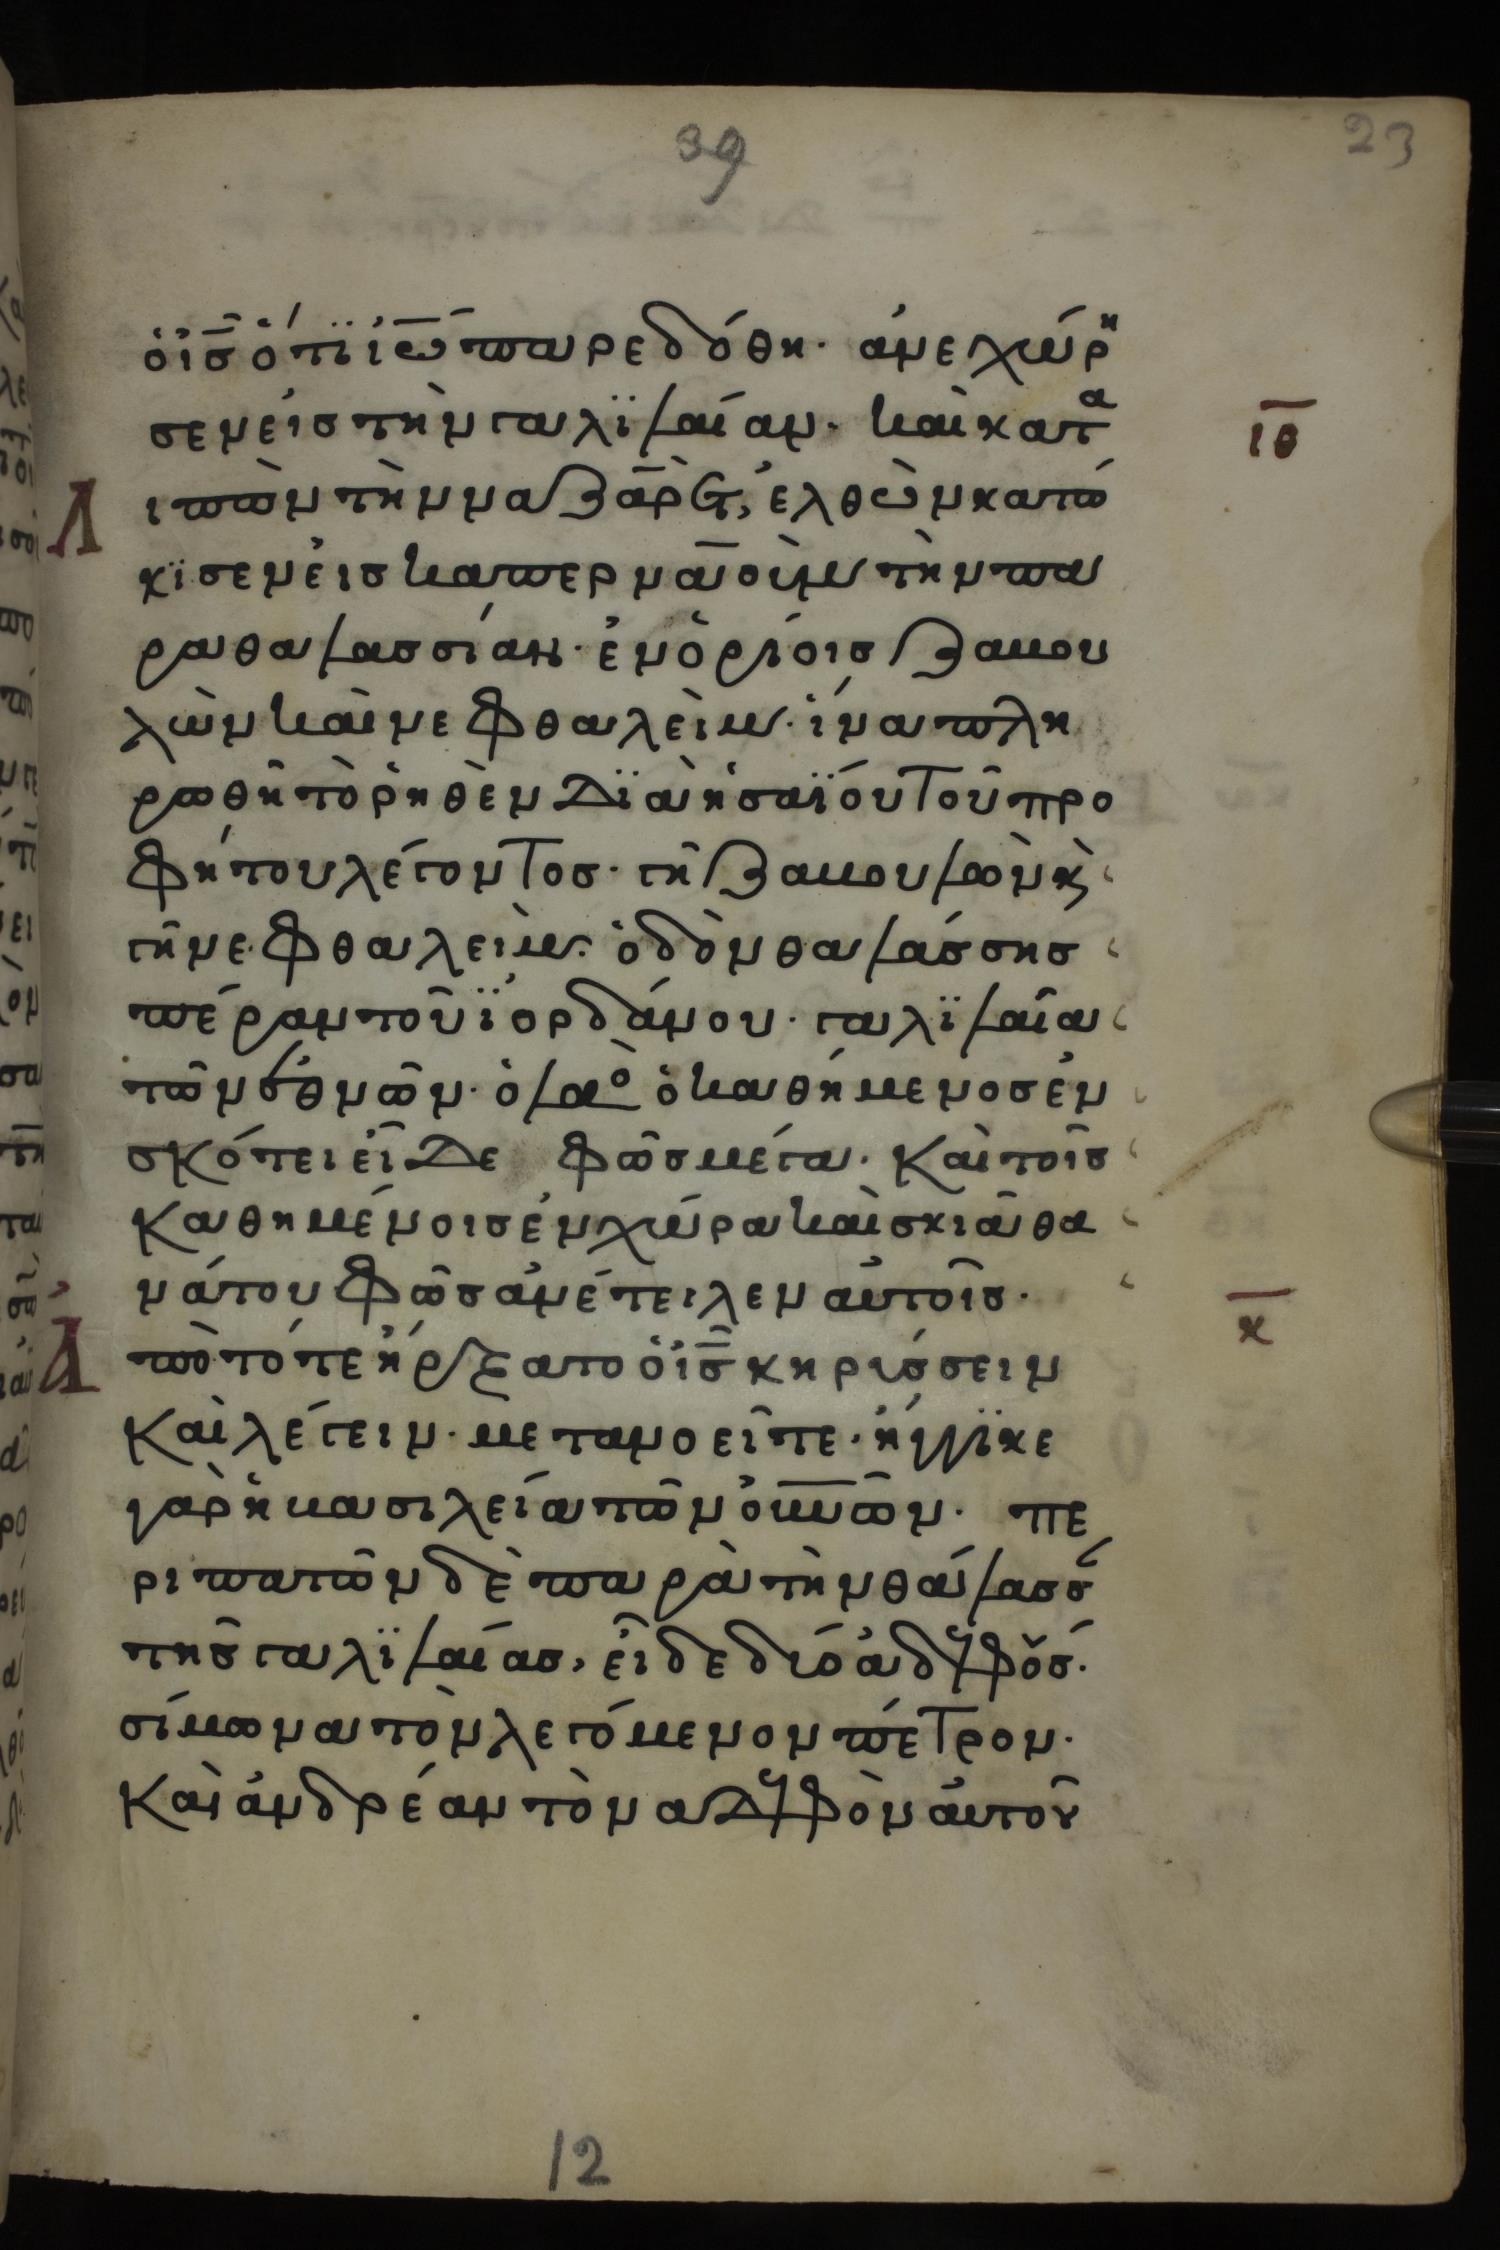 39
23
ὁ ἶς ὅτϊ ἰω̄ παρεδόθη· ἀνεχώρη
σεν εἰς τὴν γαλϊλαίαν· καὶ κατα
ιθ
λιπὼν τὴν ναζαρὲτ, ἐλθὼν κατώ
κϊσεν εἰς καπερναοὺμ τὴν πα
ραθαλασσίαν· ἐν ὁρίοις ζαβου
λὼν καὶ νεφθαλεὶμ· ἵνα πλη
ρωθῆ τὸ ῥηθὲν δϊὰ ἠσαϊου τοῦ προ
φήτου λέγοντος· γῆ ζαβουλὼν κ̀
γῆ νεφθαλεὶμ· ὁδὸν θαλάσσης
πέραν τοῦ ϊορδάνου· γαλϊλαῖα
τῶν ἐθνῶν· ὁ λαο ὁ καθήμενος ἐν
σκότει εἶδε φῶς μέγα· καὶ τοῖς
καθημένοις ἐν χώρα καὶ σκιᾶ θα
νάτου φῶς ἀνέτειλεν αὐτοῖς·
κ
ἀπὸ τότε ἤρξατο ὁ ἶς κηρύσσειν
καὶ λέγειν· μετανοεῖτε· ἤγγϊκε
γὰρ ἡ βασιλεία τῶν οὐνῶν· πε
ριπατῶν δὲ παρὰ τὴν θάλασσ
τῆς γαλϊλαίας, εἶδε δύο ἀδελφούς·
σίμωνα τὸν λεγόμενον πέτρον·
καὶ ἀνδρέαν τὸν ἀδελφὸν αὐτοῦ
12